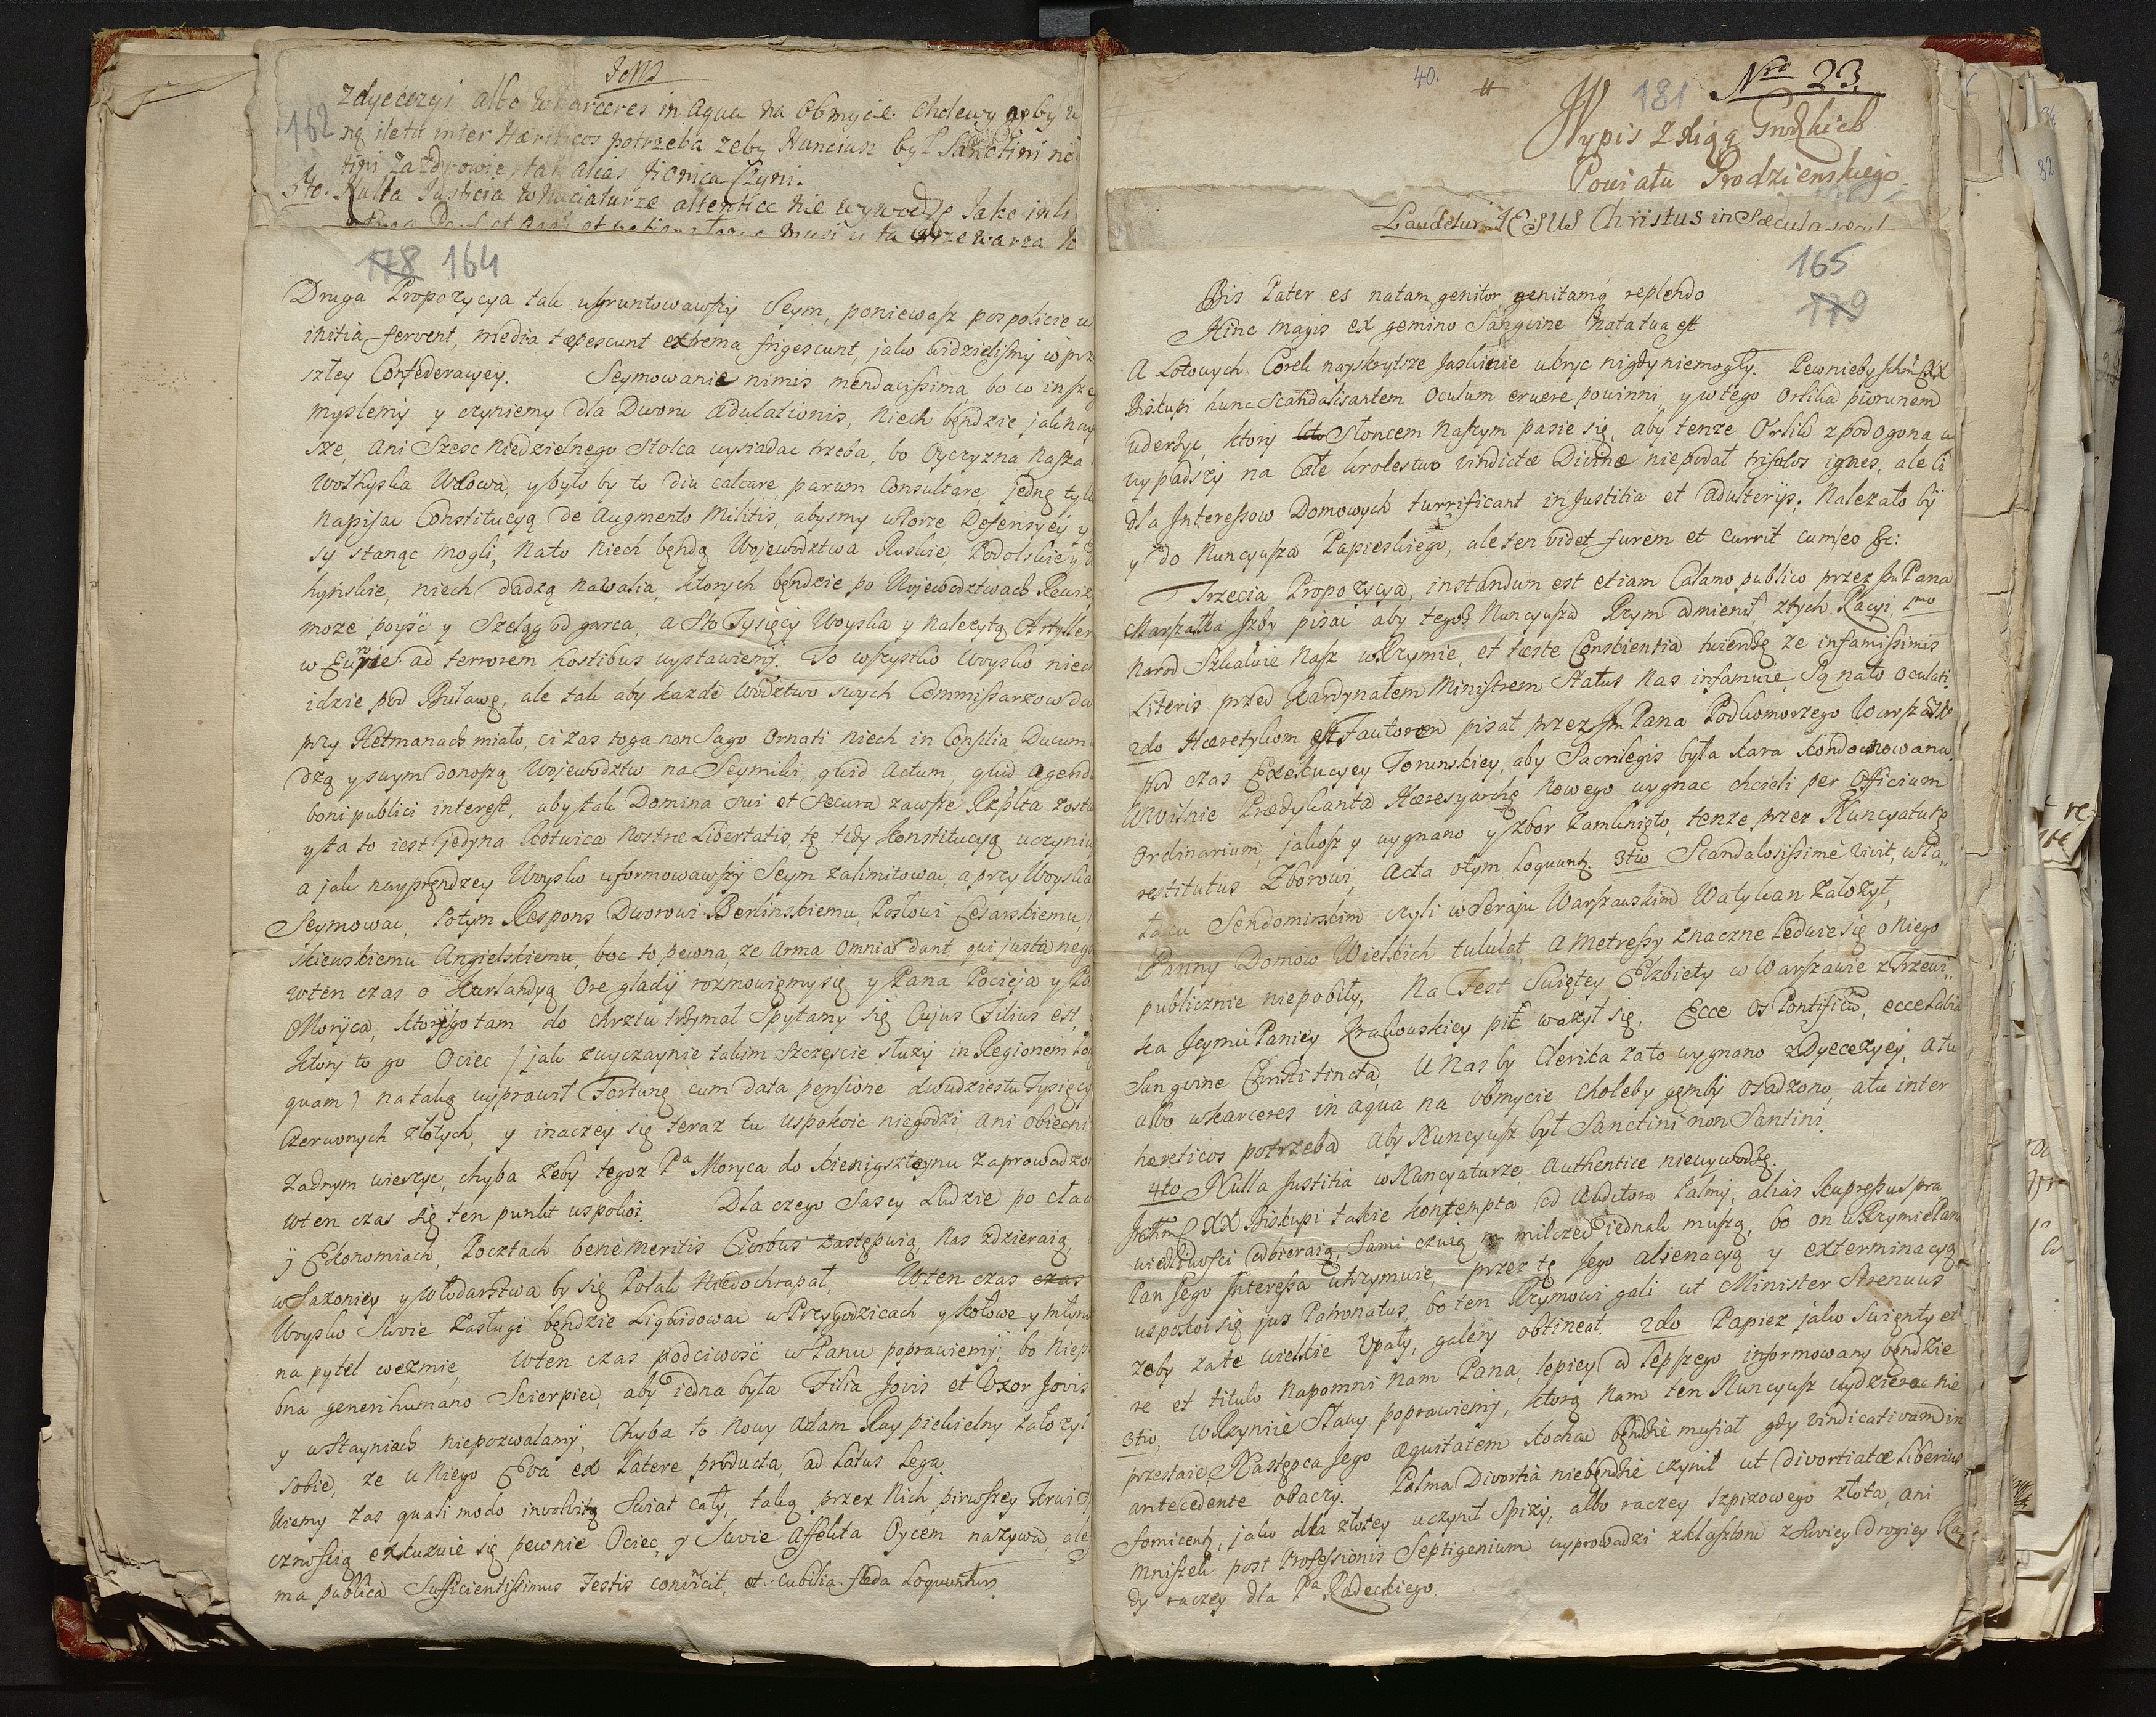 JcM
zdyecezyi albo w karceres in aqua na obmycie cholewy
162
ną iletu inter Haereticos potrzeba zeby Nunciusz był Sanctini no
tini za zdrowie tak alias
5to. Nulla Justicia w Nuciaturze altentice nie wywodzę Jako
178 164
Druga Propozycya tak ugruntowawszy Seym, poniewasz pospolicie
initia fervent, media tepescunt extrema frigescunt, jako widzieliśmy w prz
szłey Confederacyey. Seymowanie nimis mendacissima, bo co insze
myslemy y czyniemy dla Dworu Adulationis, niech będzie jaknay
sze, ani Szesc Niedzielnego Stolca wysiadac trzeba, bo Oyczyzna nasza
Wdowa, y było by to diu calcare, parum Consultare, jednę tylk
Napisac Constitucyą de Augmento Militis, abysmy w Torze Defensyey y
sy stanąc mogli, Nato niech będą Wojewodztwa Ruskie, Podolskie y
hyńskie, niech dadzą nawalia, ktorych będzie po Wojewodztwach Rewiz
moze poyść y Szeląg od garca, a Sto Tysięcy Woyska y nalezytą Artyller
w Eurpie ad terrorem hostibus wystawiemy. To wszystko Woysko niech
idzie pod Buławę, ale tak aby kazde wodztwo swych Commissarzow
przy Hetmanach miało, ci zas toga non Sago Ornati niech in Consilia Ducum
dzą y swym donoszą Wojewodztw na Seymiki, quid Actum, quid agend
boni publici interest, aby tak Domina sui et Secura zawsze Rzplta zost
yta to iest jedyna Kotwica Nostrae Libertatis, tę tedy Konstitucyą uczyniw
a jak nayprędzey Woysko uformowawszy Seym zalimitowac, a przy Woysku
Seymowac, Potym Respons Dworowi Berlinskiemu, Posłowi Cesarskiemu,
skiewskiemu Angielskiemu, boc to pewna, ze Arma Omnia dant, qui justa neg
Wten czas o Kurlandyą Ore gladij rozmowięmy się y Pana Pocieja y Pa
Moryca, ktory go tam do chrztu trzymał Spytamy się Cujus Filius est,
ktory to go Ociec / jak zwyczaynie takim szczęscie słuzy in Regionem
quam) na taką wyprawił Fortunę cum data pensione dwudziestu Tysięcy
Czerwonych złotych, y inaczey się teraz tu uspokoic niegodzi, ani obiecni
zadnym wierzyc, chyba zeby tegoz Pa Moryca do Kienigszteynu zaprowadzo
Wten czas się ten punkt uspokoi. Dla czego Sascy Ludzie po cłach
y Ekonomiach, Pocztach benemeritis Civibus zastępuią, nas zdzieraią,
w Saxoniey y Włodarstwa by się Polak niedochrapał. Wten czas czas
Woysko Swoie zasługi będzie Liquidowac w Przygodzicach y kołowe y młyn
na pytel wezmie, Wten czas podciwość w Panu poprawiemy, bo niep
bna generi humano Scierpiec, aby iedna była Filia Jovis et Uxor Jovis
y w stayniach niepozwalamy, Chyba to nowy Adam Ray piekielny załozył
sobie, ze u niego Eva ex Latere producta, ad Latus Lega.
Wiemy zas quasi modo involvitq Swiat cały, taką przez nich pirwszey Krwie
cznością exkuzuie się pewnie Ociec, y Swoie Affekta Oycem nazywa, ale
ma publica Sufficientissimus Testis convincit, et cubilia faeda Loquuntur.
40.
181 Nro 23
Wypis z Xiąg Grodzkich
Powiatu Grodzienskiego.
Laudetur JESUS Christus in Saecula
165
179
Bis Pater es natam genitor, genitamq replendo
Hinc magis ex gemino Sanguine Nata tua est
A Lotowych Corek nayskrytsze Jaskinie ukryc nigdy niemogły. Pewnieby
Biskupi hunc Scandalisantem Oculum eruere powinni, y wtego Orlika piorunem
uderzyc, ktory Słoncem naszym pasie się, aby tenze Orlik z pod ogona
wypadszy na całe krolestwo Vindictae Divinae niepodał trisulos ignes, ale ci
dla Interessow Domowych turrificant injustitia et adulteriis. Nalezało by
y do Nuncyusza Papieskiego, ale ten videt furem et currit cum eo &c:
Trzecia Propozycya, instandum est etiam Calamo publico przez Jm Pana
Marszałka Izby pisac aby tegoz Nuncyusza Rzym odmienił, z tych Racyi, 1mo
Narod Szkaluie nasz w Rzymie, et taeste Conscientia twierdzę ze infamissimis
Literis przed Kardynałem Ministrem Status nas infamuie, Są nato Oculati.
2do Haeretykom est Fautorem pisał przez Jm Pana Podkomorzego
pod czas Exekucyey Torunskiey, aby Sacrilegis była kara kondonowana
W Wilnie Praedykanta Haeresyarchę nowego wygnac chcieli per Officium
Ordinarium, jakosz y wygnano y zbor zamknięto, tenze przez Nuncyaturę
restitutus Zborowi, Acta otym loquunt. 3tio Scandalosissime vivit, w Pa„
łacu Sendomirskim czyli w Seraju Warszawskim Watykan załozył,
Panny Domow Wielkich tululat, a Metressy znaczne ledwie się o niego
publicznie niepobiły, Na Fest Swiętey Elzbiety w Warszawie z Trzewi„
ka Jeymci Paniey Krakowskiey pić wazył się, Ecce Os Pontificiu, ecce Labia
Sanguine Christi tincta, U nas by Clerika zato wygnano z Dyecezyey, a tu
albo w karceres in aqua na obmycie Choleby gęmby osadzono, a tu inter
haereticos potrzeba aby Nuncyusz był Sanctini non Santini.
4to Nulla Justitia w Nuncyaturze, Authentice niewywodzę.
XX Biskupi takie kontempta od Auditora Palmy, alias
wiedliwosci odbieraią, Sami czuią milczec iednak muszą, bo on w Rzymie Pana
Pan Jego Interessa utrzymuie, przez tę Jego alienacyą y exterminacyą
uspokoi się jus Patronatus, bo ten Rzymowi gali ut Minister Strenuus
zeby zate wielkie Upały, galery obtineat. 2do Papiez jako Swięty et
re et titulo napomni nam Pana, lepiey a lepszego informowany będzie
3tio, W Rzymie Sławy poprawiemy, ktorą nam ten Nuncyusz wydzierac nie
przestaie, Następca Jego aequitatem kochac będzie musiał gdy vindicativam in
antecedente obaczy. Palma Divortia niebędzie czynił ut Divortiatae Liberius
fornicent, jako dla złotey uczynił Spizy, albo raczey Szpizowego złota, ani
Mniszek post Professionis Septigenium wyprowadzi z klasztoru z Swoiey drogiey
dy raczey dla Pa Radeckiego.